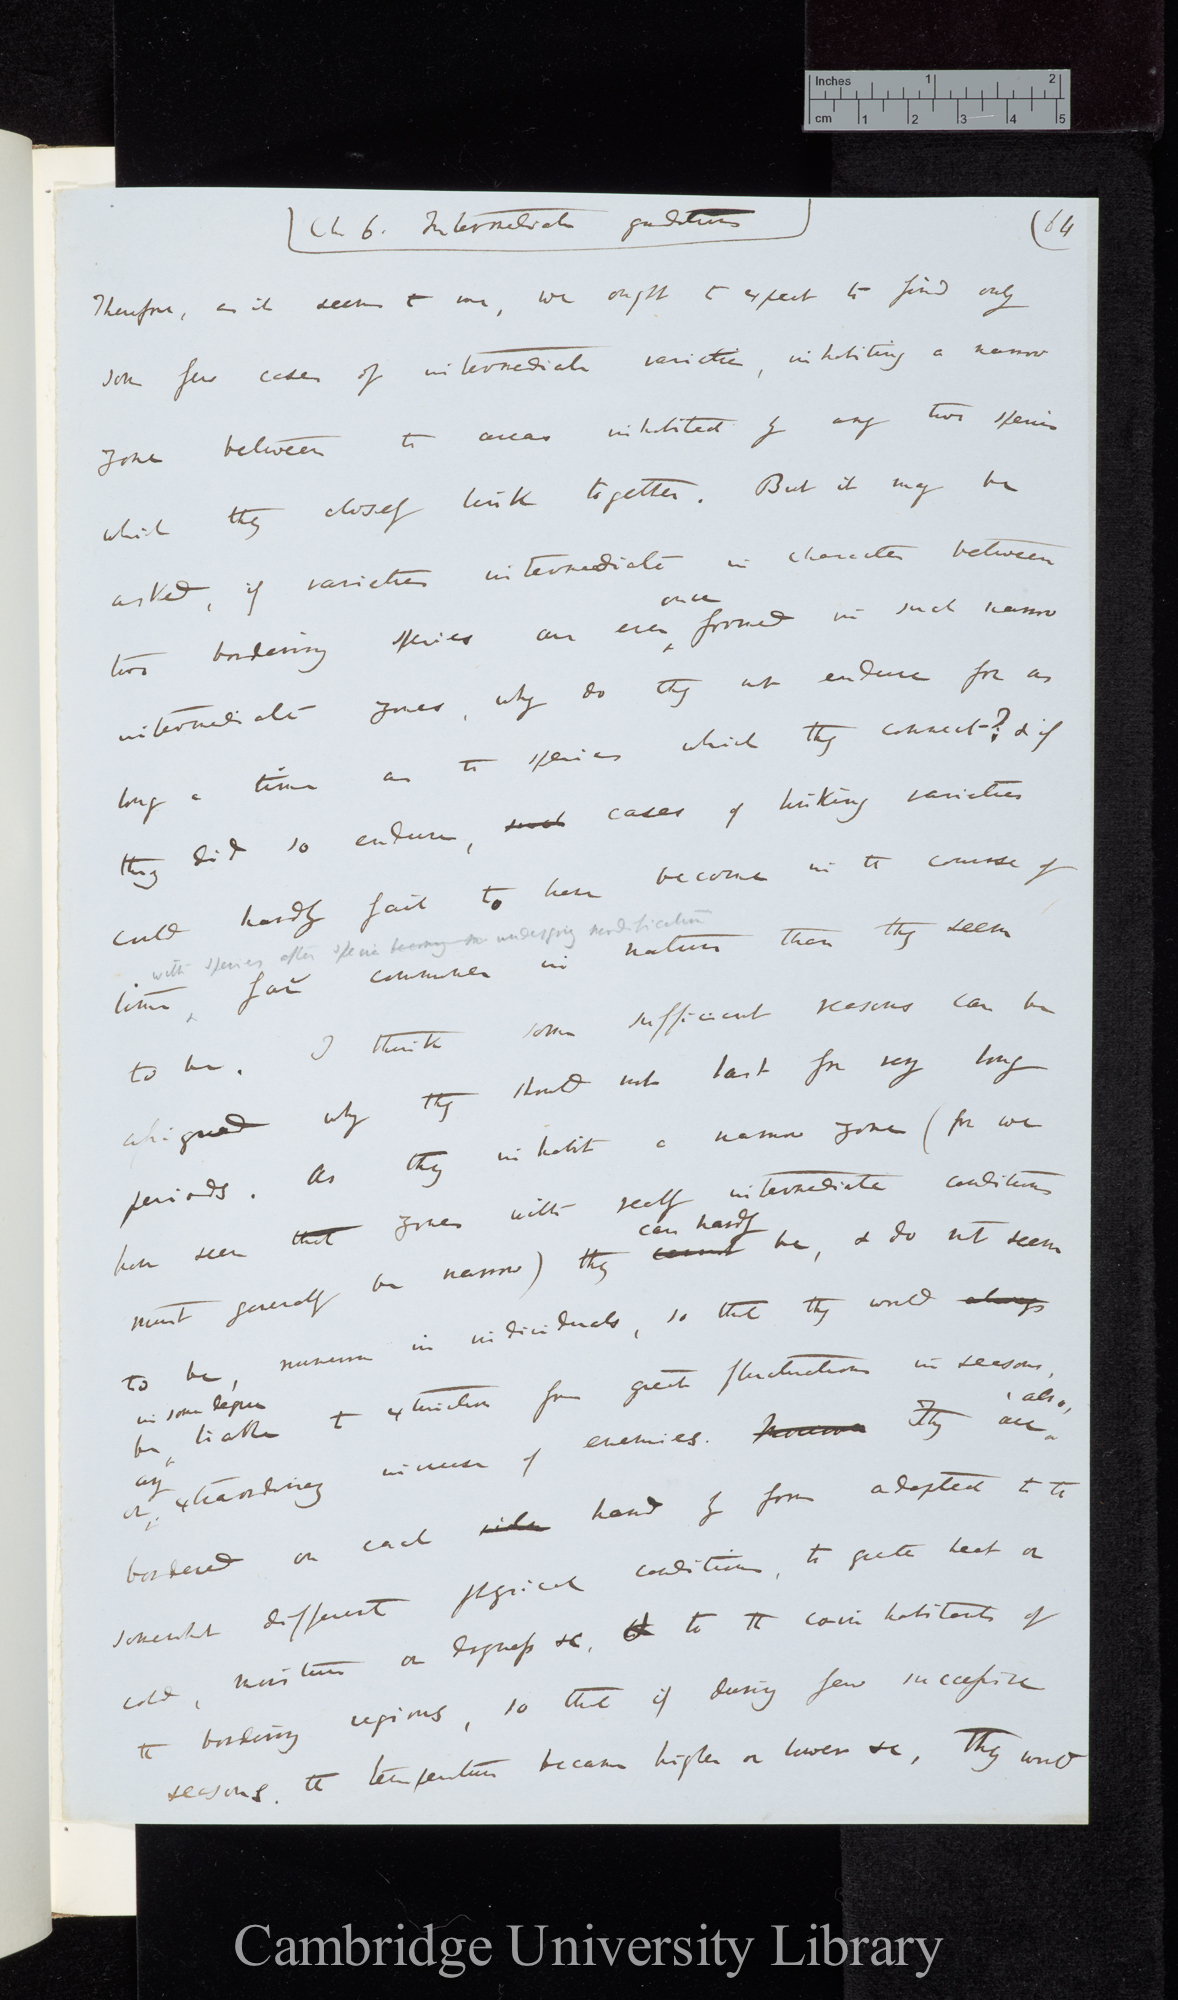 Inches 1 2
cm 1 2 3 4 5
Ch 6. Intermediate gradations
(64
Therefore, as it seems to me, we ought to expect to find only
some few cases of intermediate varieties, inhabiting a narrow
zone between the areas inhabited by any two species
which they closely link together. But it may be
asked, if varieties intermediate in character between
once
two bordering species are ever formed in such narrow
intermediate zones, why do they not endure for as
long a time as the species which they connect? & if
they did so endure, such cases of linking varieties
could hardly fail to have become in the course of
with species after species undergoing modification
time, far commoner in nature than they seem
to be. I think some sufficient reasons can be
assigned why they should not last for very long
periods. As they inhabit a narrow zone (for we
have seen that zones with really intermediate conditions
can hardly
must generally be narrow) they cannot be, & do not seem
to be, numerous in individuals, so that they would always
in some degree
be liable to extinction from great fluctuations in seasons,
any
also,
or extraordinary increase of enemies. Moreover They are
bordered on each side hand by forms adapted to the
somewhat different physical conditions, to greater heat or
cold, moisture or dryness &c, & to the coinhabitants of
the bordering regions, so that if during few successive
seasons, the temperature became higher or lower &c, they would
Cambridge University Library